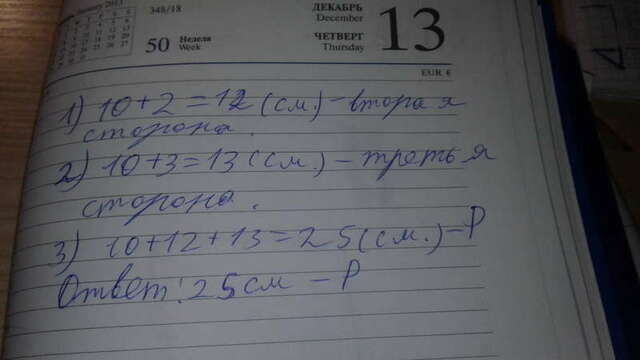 2013
348/18
ДЕКАБРЬ
December
13
50 Неделя
Week
ЧЕТВЕРГ
Thursday
EUR €
1) 10+2=12 (см.) – вторая
сторона.
2) 10+3=13 (см.) – третья
сторона.
3) 10+12+13=25(см.) – P
Ответ: 25 см – P